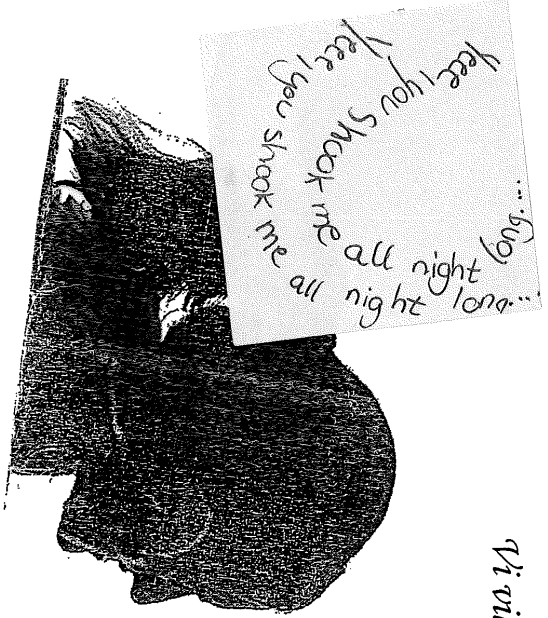 Yeee, you shook me all night long....
Yeee, you shook me all night long....
Vi vil